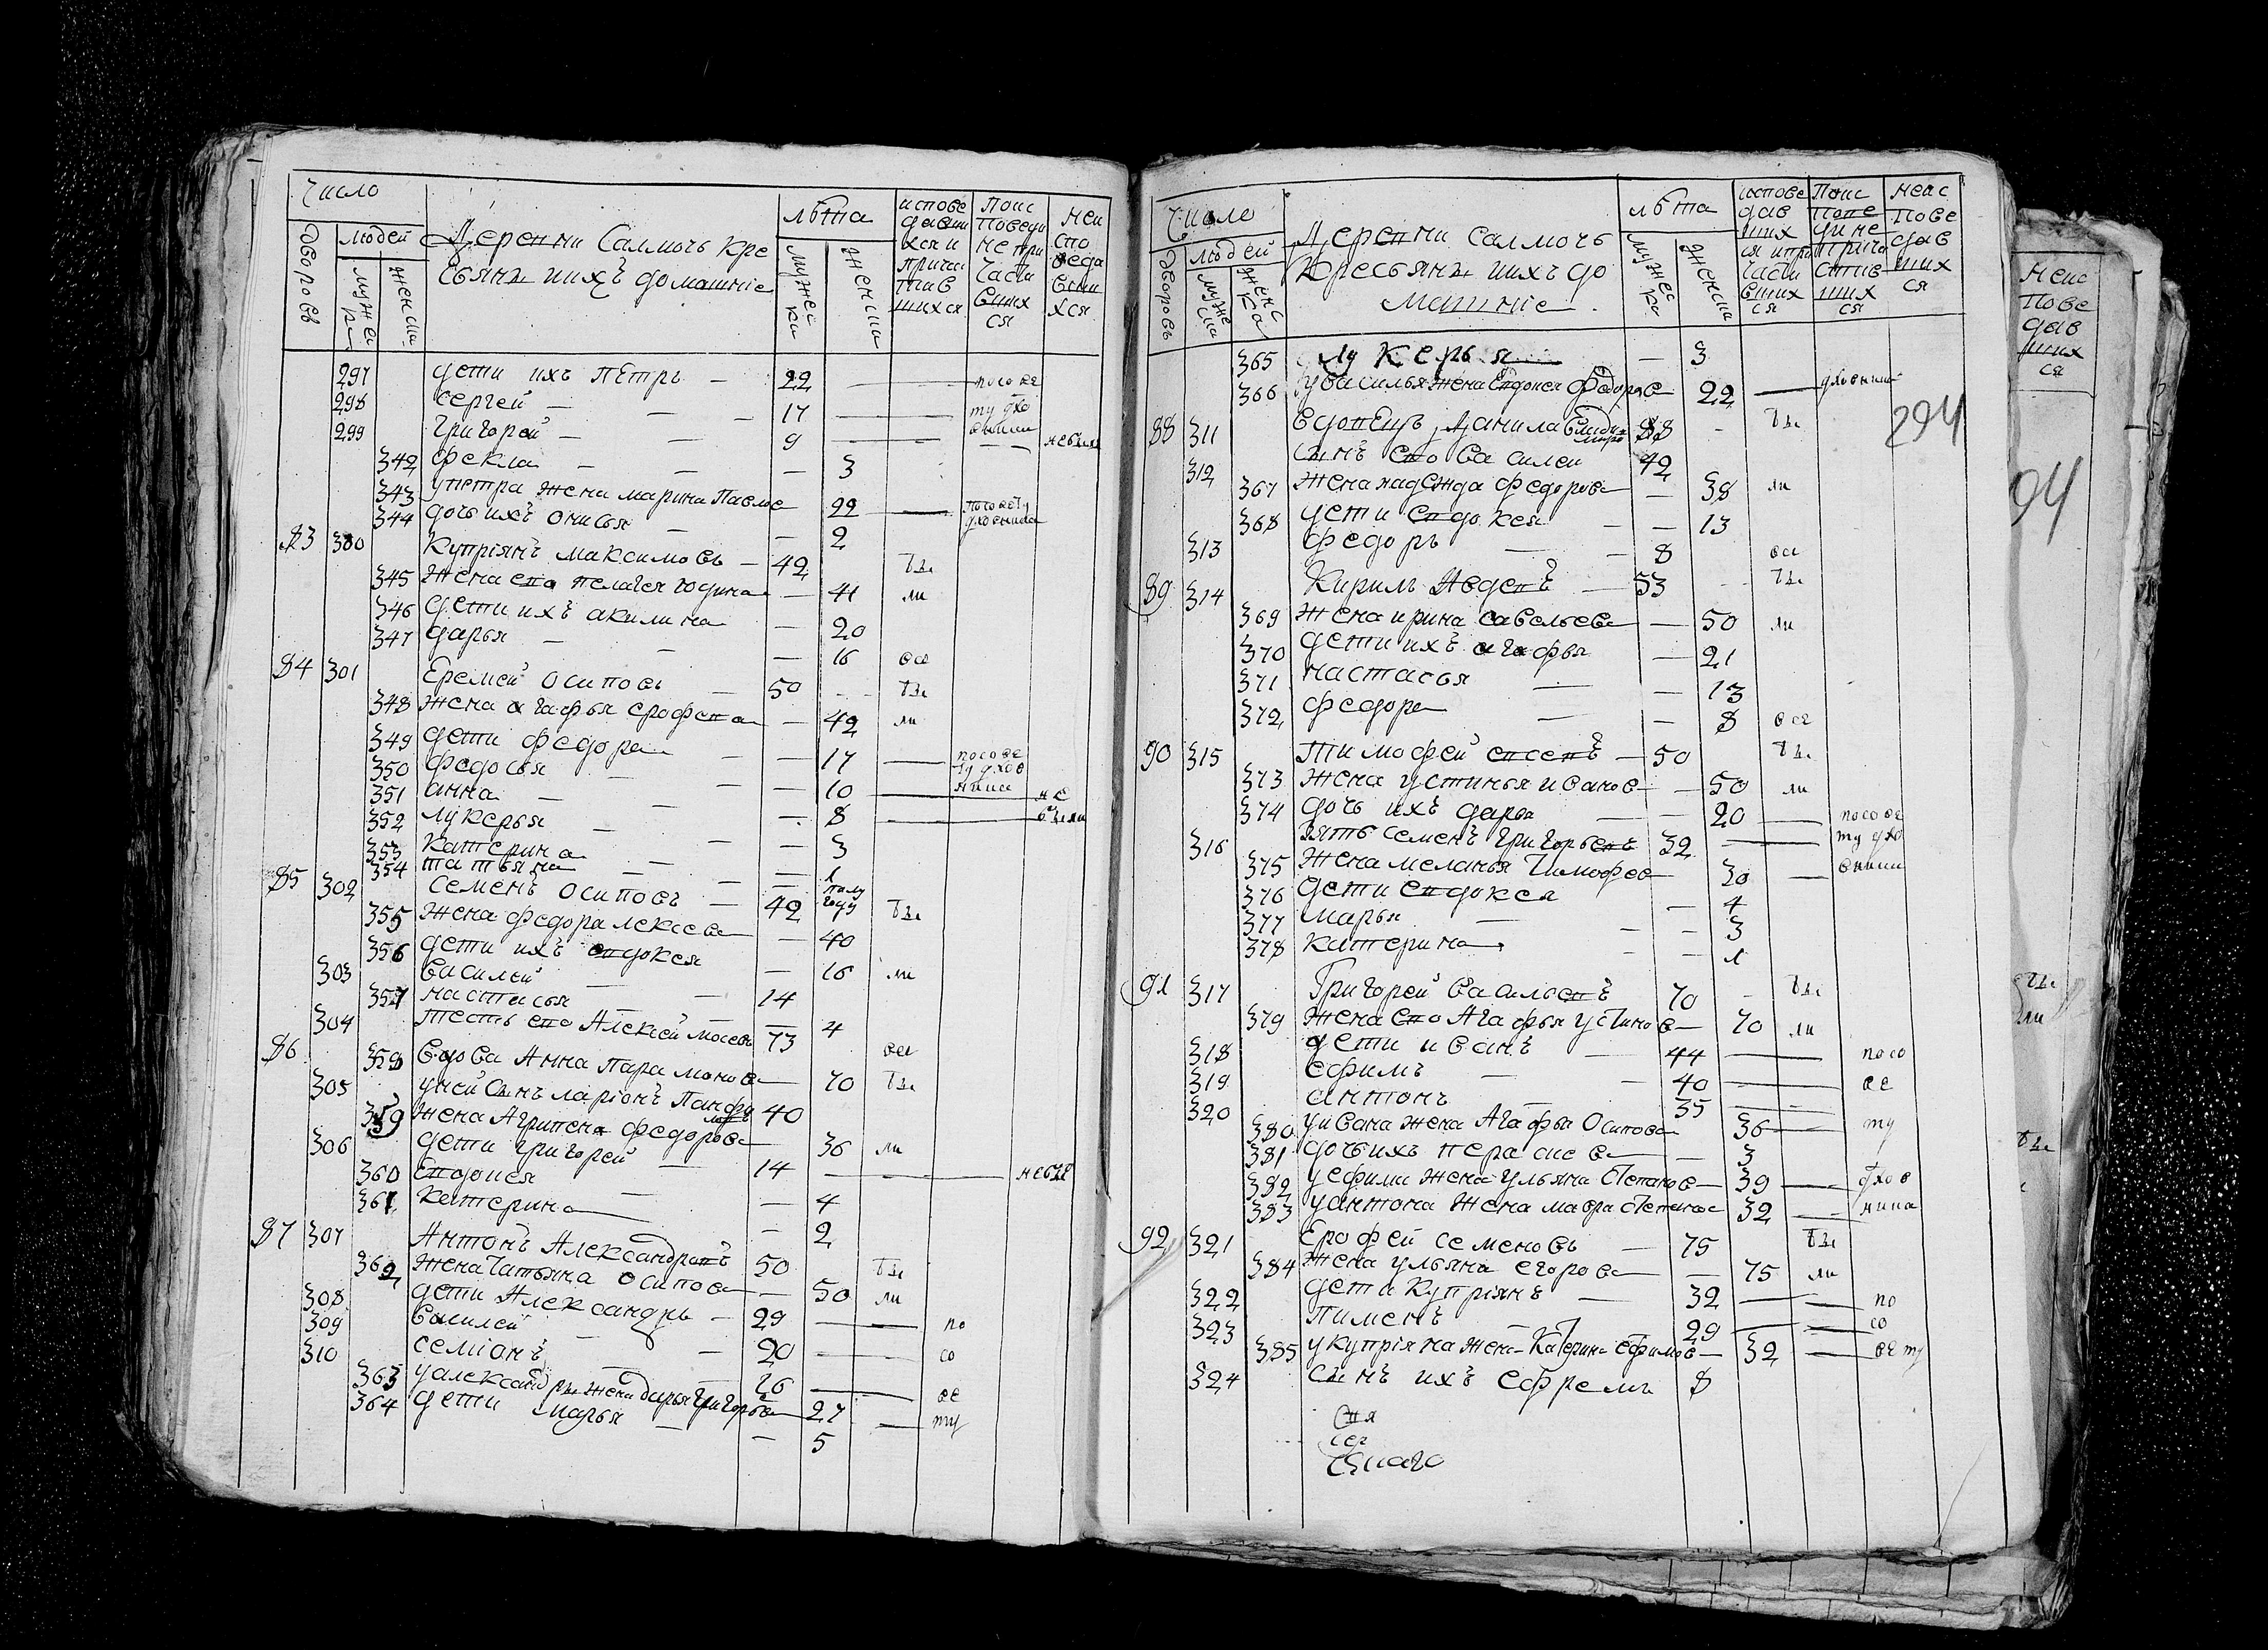 Число
Дворовъ
Людей
Мужеска
Женска
Деревни Салмочь кре
стьяне и ихъ домашнiе
лѣта
Мужес
ка
Женска
исповѣ
давши
хся и
причас
тив
шихся
Поис
поведи
не при
части
вших
ся
Неи
спо
веда
вши
хся
297 дети ихъ пётръ — 22 посове
298 сергей — 17 ту дхо
299 григорей — 9 вники не были
342 фекла — 3
343 упетра жена марина Павлов 22 посовету
344 дочь ихъ онисья — 2 дховника
83 300 Купрiянъ максимовъ — 42 бы
345 жена ево пелагея родiона — 41 ли
346 дети ихъ акилина — 20
347 дарья — 16 все
84 301 Еремей осиповъ — 50 бы
348 жена агафья ерофева — 42 ли
349 дети федора — 17 посове
350 федосья — 10 ту дхов
351 анна — 8 ника не
352 лукерья — 3 были
353 катерина — 1
354 татьяна — полу году
85 302 семенъ осиповъ — 42 бы
355 жена федора лексеева — 40
356 дети ихъ евдокея — 16 ли
303 василей — 14
357 настасья — 4
304 тесть ево Алексей мосевъ 73 все
86 358 вдова Анна парамонова — 70 бы
305 уней сынъ ларiонъ Панфи
ловъ 40
359 жена Агрипена федорова 36 ли
306 дети григорей — 14 небые
360 Евдокея — 4
361 катерина — 2
87 307 Антонъ Александровъ 50 бы
362 жена татьяна осипова — 50 ли
308 дети Александръ — 29 по
309 василей — 20 со
310 семiонъ — 16 ве
363 уалександры жена дарья григорьева 27 ту
364 дети марья — 5
Число
Дворовъ
Людей
муже
ска
женс
ка
Деревни Салмочь
Крестьяне ихъ до
машнiе
лѣта
Мужес
ка
Женска
испове
дав
ших
ся и при
части
вших
ся
Поис
пове
ди не
прича
стив
ших
ся
Неис
пове
дав
ших
ся
365 лукерья — 3
366 увасилья жена Евдокея федорове 22 дховники
88 311 вдовецъ Данила Елиди
миро 88 бы
312 сынъ ево василеи 42
367 жена надежда федорова — 38 ли
368 дети евдокея — 13
313 федоръ — 8 все
89 314 Кирилъ Авдевъ — 53 бы
369 жена ирина савельева — 50 ли
370 дети ихъ агафья — 21
371 настасья — 13
372 федора — 8 все
90 315 тимофей евсевъ — 50 бы
373 жена устинья иванов — 50 ли
374 дочь ихъ дарья — 20 посове
316 зять семенъ григорьевъ 32 ту дхо
375 жена меланья тимофев 30 вники
376 дети евдокея — 4
377 марья — 3
378 катерина — 1
91 317 Григорей васильевъ 70 бы
379 жена ево Агафья устинов 70 ли
318 дети иванъ — 44 посо
319 ефимъ — 40 ве
320 антонъ — 35
380 уивана жена Агафья Осипова 36 ту
381 дочь ихъ пераскева — 3
382 уефима жена ульяна степанов 39 дхов
383 уантона жена мавра степанов 32 ника
92 321 Ерофей семеновъ — 75 бы
384 жена ульяна егорова — 75 ли
322 дети Купрiянъ — 32 по
323 пименъ — 29 со
385 укупрiяна жена Катерина ефимов 32 вету
324 сынъ ихъ ефремъ 8
свя
294
Неис
пове
дав
ших
ся
94
бы
ли
бы